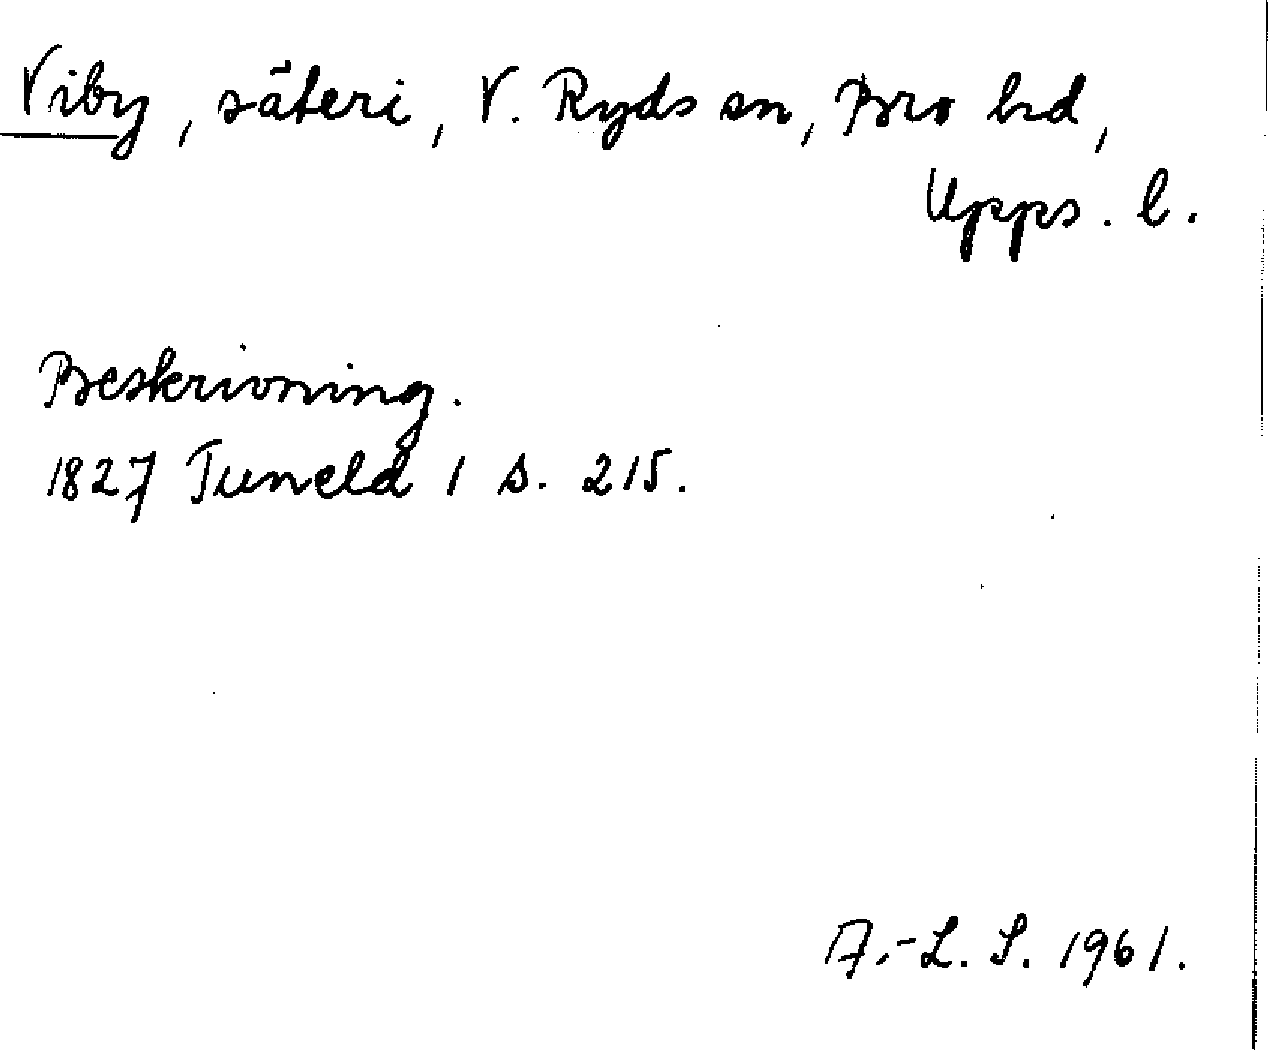 Viby, säteri, V. Ryds sn, Bro hd,
Upps. l.
Beskrivning.
1827 Tuneld 1 s. 215.
A.-L. S. 1961.